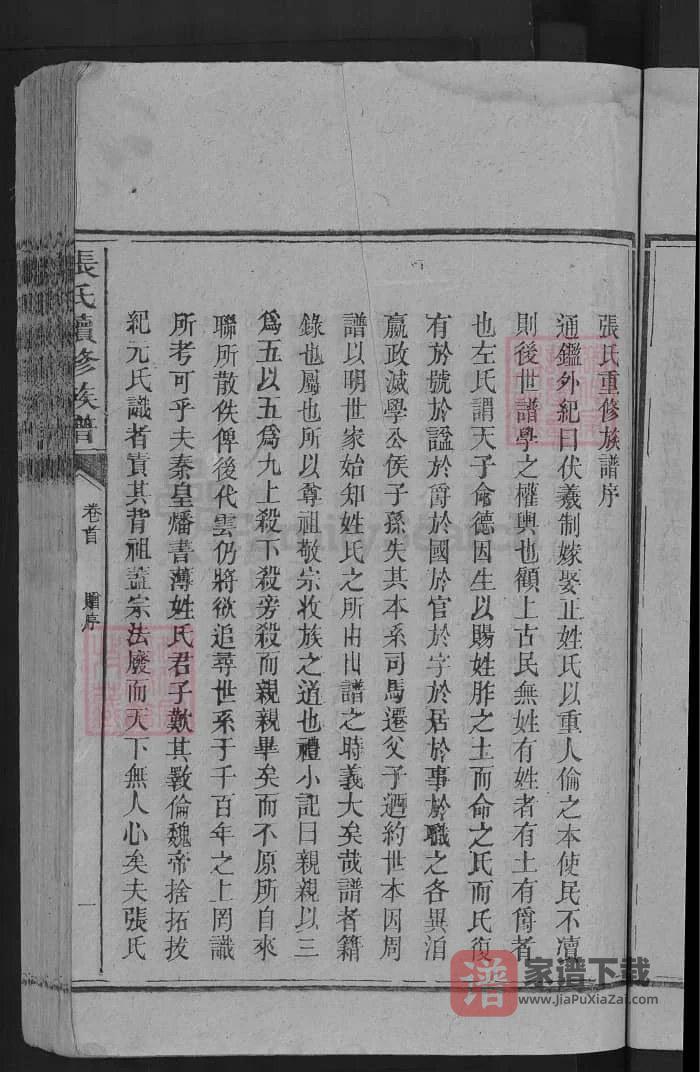 張氏重修族譜序
通鑑外紀曰伏羲制嫁娶正姓氏以重人倫之本使民不瀆
則後世譜學之權輿也顧上古民無姓有姓者有土有爵者
也左氏謂天子命德因生以賜姓胙之土而命之氏而氏復
有於號於諡於爵於國於官於字於居於事於職之各異洎
嬴政滅學公侯子孫失其本系司馬遷父子迺約世本因周
譜以明世家始知姓氏之所由出譜之時義大矣哉譜者籍
錄也屬也所以尊祖敬宗收族之道也禮小記曰親親以三
為五以五為九上殺下殺旁殺而親親畢矣而不原所自來
聯所散佚俾後代雲仍將欲追尋世系于千百年之上罔識
所考可乎夫秦皇燔書薄姓氏君子歎其斁倫魏帝捨拓拔
紀元氏識者責其背祖蓋宗法廢而天下無人心矣夫張氏
張氏續修族譜
卷首
贈序
一
FamilySearch
譜
家谱下载
www.JiaPuXiaZai.com